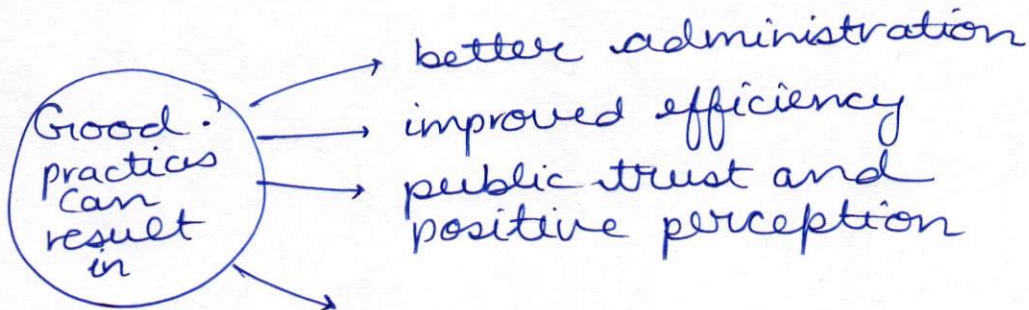 Good
practices
can
result
in
better administration
improved efficiency
public trust and
positive perception